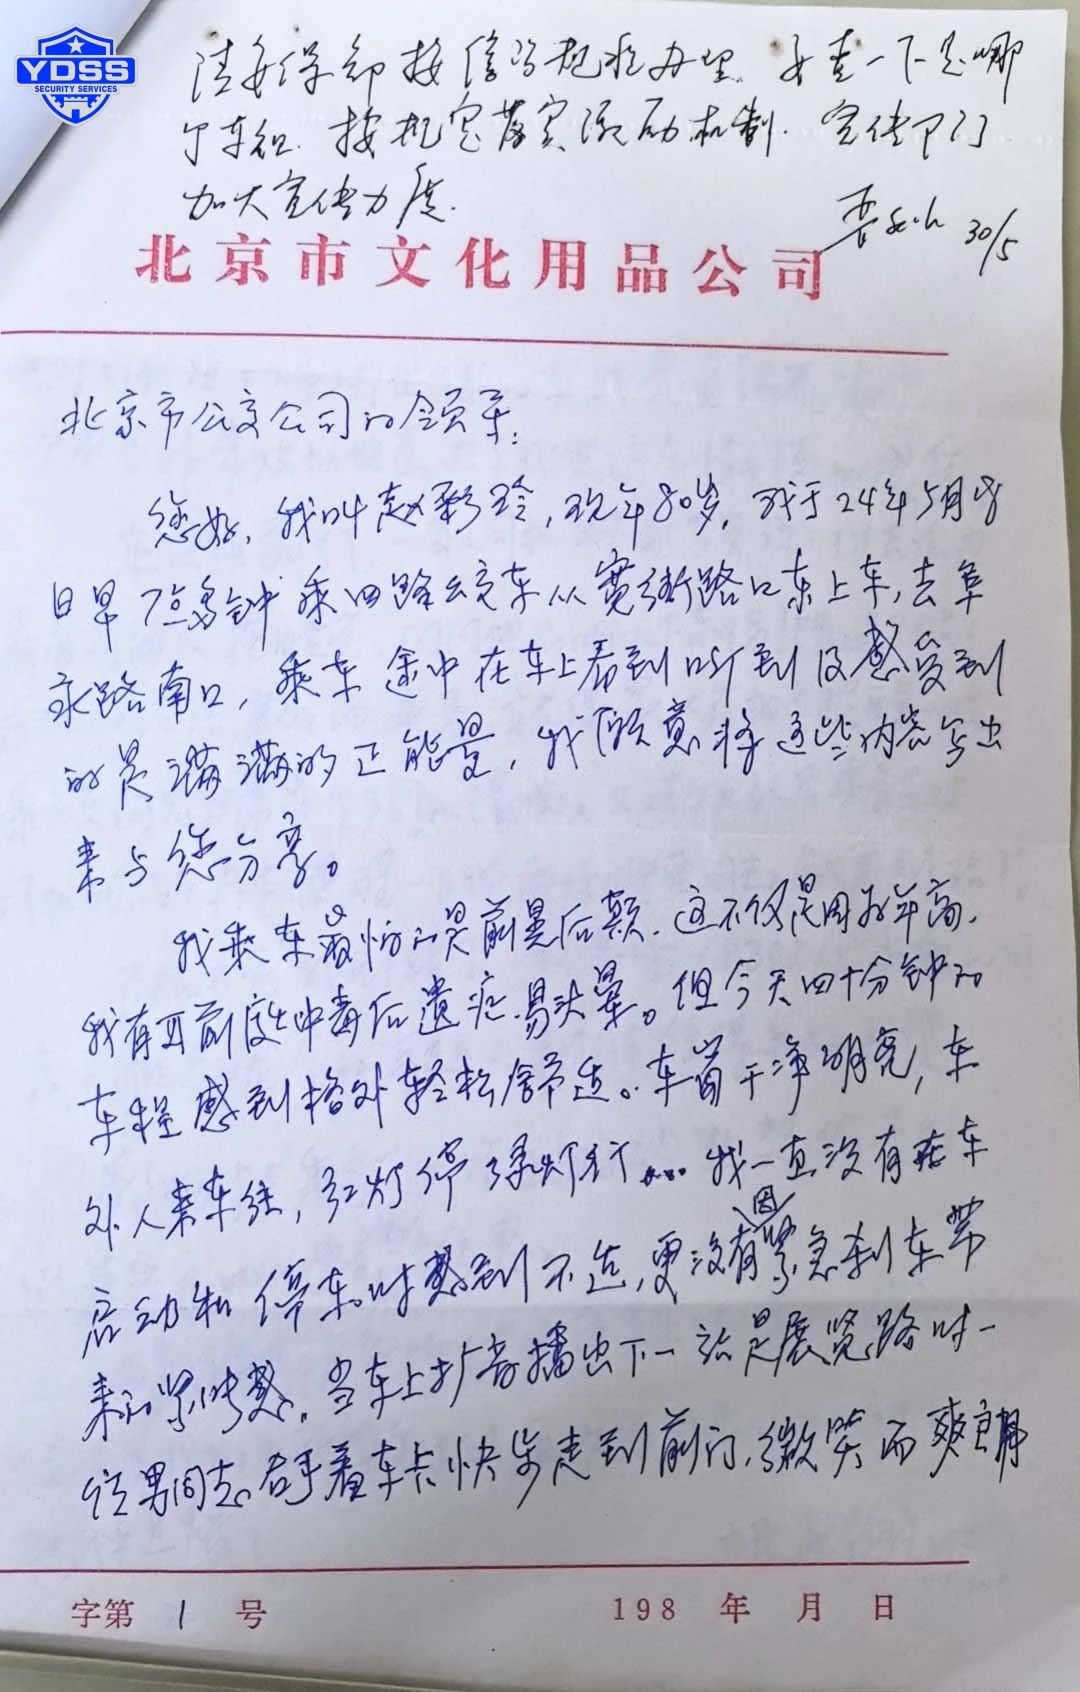 YDSS
SECURITY SERVICES
请安保部按信访规程办理. 并查一下是哪
个车组. 按规定落实激励机制. 宣传部门
加大宣传力度.
30/5
北京市文化用品公司
北京市公交公司的领导:
您好, 我叫赵彩玲, 现年80岁, 我于24年5月18
日早7点多钟乘四路公交车从宽街路口东上车, 去阜
永路南口, 乘车途中在车上看到听到及感受到
的是满满的正能量, 我愿意将这些内容写出
来与您分享。
我乘车最怕的是前晃后颠. 这不仅是因为年高.
我有耳前庭中毒后遗症. 易头晕。但今天四十分钟的
车程感到格外轻松舒适。车窗干净明亮, 车
外人来车往, 红灯停绿灯行…… 我一直没有在车
启动和停车时感到不适, 更没有因紧急刹车带
来的紧张感。当车上扩音播出下一站是展览路时一
位男同志右手着车卡快步走到前门, 微笑而爽朗
字第 1 号
198 年 月 日